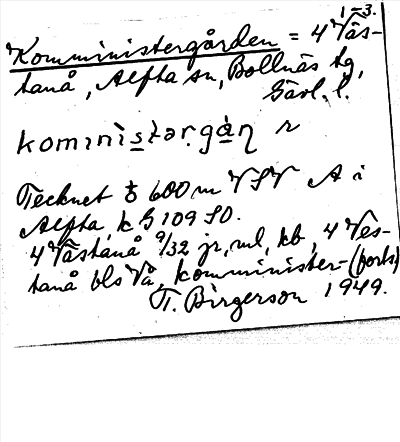 Komministergården = 4 1-3. Väs-
tanå, Alfta sn, Bollnäs tg,
Gävl. l.
kominìstərgàṇ r
Tecknet ♁ 600 m VSV A i
Alfta, k G 109 SO.
4 Västanå 9/32 jr, ml, kb, 4 Ves-
tanå bls Vå, komminister- (forts)
T. Birgerson 1949.